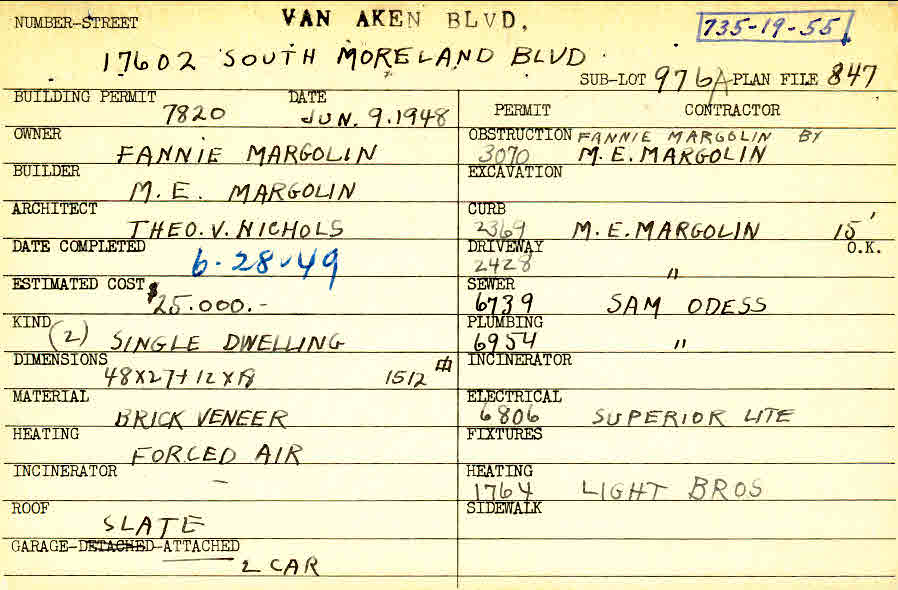 NUMBER-STREET VAN AKEN BLVD. 735-19-55
17602 SOUTH MORELAND BLVD
SUB-LOT 976A PLAN FILE 847
BUILDING PERMIT 7820 DATE JUN. 9. 1948
PERMIT CONTRACTOR
OWNER FANNIE MARGOLIN
OBSTRUCTION 3070 FANNIE MARGOLIN BY M. E. MARGOLIN
BUILDER M. E. MARGOLIN
EXCAVATION
ARCHITECT THEO. V. NICHOLS
CURB 2369 M. E. MARGOLIN 15'
DATE COMPLETED 6-28-49
DRIVEWAY 2428 " O.K.
ESTIMATED COST $25.000.-
SEWER 6739 SAM ODESS
KIND (2) SINGLE DWELLING
PLUMBING 6954 "
DIMENSIONS 48X27+12X18 1512
INCINERATOR
MATERIAL BRICK VENEER
ELECTRICAL 6806 SUPERIOR LITE
HEATING FORCED AIR
FIXTURES
INCINERATOR -
HEATING 1764 LIGHT BROS
ROOF SLATE
SIDEWALK
GARAGE-DETACHED-ATTACHED
2 CAR